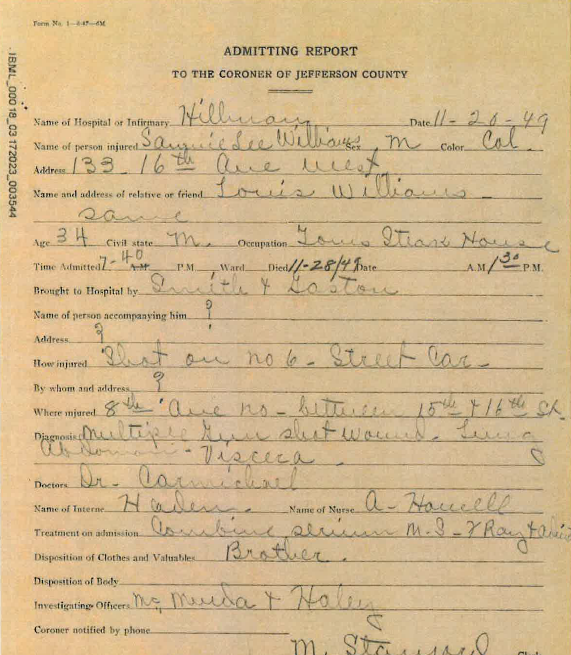 Form No. 1-6-47-6M
ADMITTING REPORT
TO THE CORONER OF JEFFERSON COUNTY
Name of Hospital or Infirmary Hillman Date 11-20-49
Name of person injured Sammie Lee Williams Sex M Color Col.
Address 133 - 16th Ave West
Name and address of relative or friend Louis Williams -
same
Age 34 Civil state M. Occupation Steak House
Time Admitted 7-40 A.M. P.M. Ward Died 11-28/49 Date A.M. 1 30 P.M.
Brought to Hospital by Smith & Gaston
Name of person accompanying him ?
Address ?
How injured Shot on no 6 - Street Car -
By whom and address ?
Where injured 8th Ave no - between 15th & 16th St.
Diagnosis Multiple Gun shot wound - Lung
Abdomen - Viscera.
Doctors Dr - Carmichael
Name of Interne Haden. Name of Nurse A - Howell
Treatment on admission Combine serium M.S - X Ray &
Disposition of Clothes and Valuables Brother.
Disposition of Body
Investigating Officers & Haley
Coroner notified by phone
M.
IBML_00018_03172023_003544